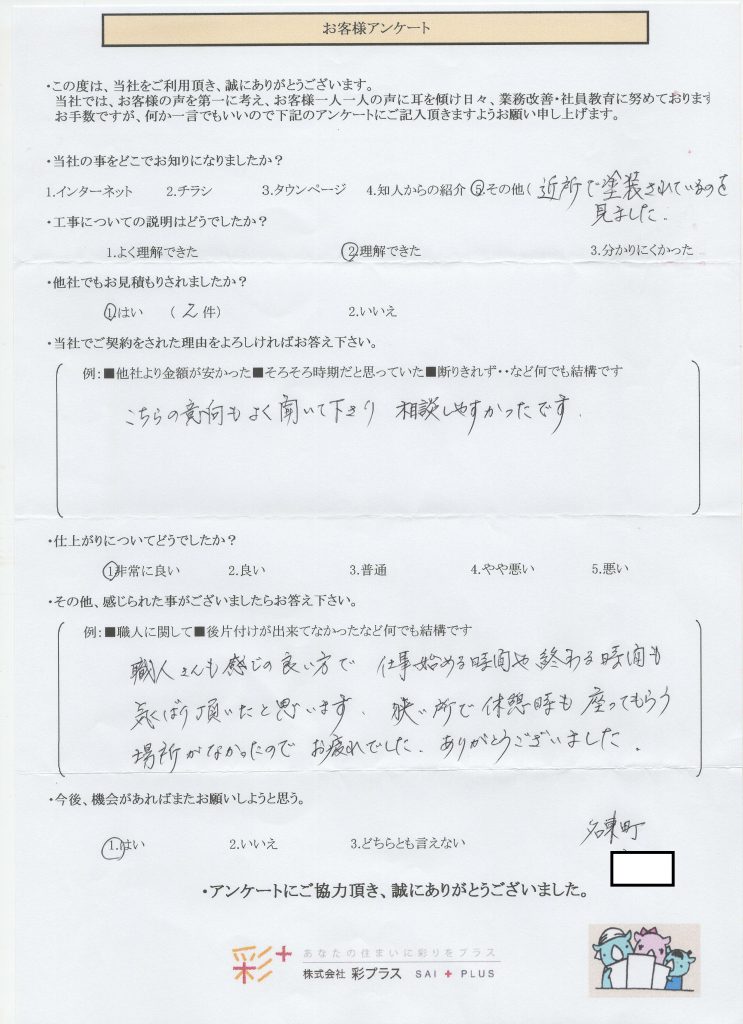 お客様アンケート
・この度は、当社をご利用頂き、誠にありがとうございます。
当社では、お客様の声を第一に考え、お客様一人一人の声に耳を傾け日々、業務改善・社員教育に努めております
お手数ですが、何か一言でもいいので下記のアンケートにご記入頂きますようお願い申し上げます。
・当社の事をどこでお知りになりましたか？
1.インターネット 2.チラシ 3.タウンページ 4.知人からの紹介 5.その他( 近所で塗装されているのを
見ました.
・工事についての説明はどうでしたか？
1.よく理解できた 2.理解できた 3.分かりにくかった
・他社でもお見積もりされましたか？
1.はい ( 2 件) 2.いいえ
・当社でご契約をされた理由をよろしければお答え下さい。
例：■他社より金額が安かった■そろそろ時期だと思っていた■断りきれず・・など何でも結構です
こちらの意向もよく聞いて下さり 相談しやすかったです.
・仕上がりについてどうでしたか？
1.非常に良い 2.良い 3.普通 4.やや悪い 5.悪い
・その他、感じられた事がございましたらお答え下さい。
例：■職人に関して■後片付けが出来てなかったなど何でも結構です
職人さんも感じの良い方で 仕事始める時間や終わる時間も
気くばり頂いたと思います. 狭い所で休憩時も座ってもらう
場所がなかったので お疲れでした. ありがとうございました.
・今後、機会があればまたお願いしようと思う。
1.はい 2.いいえ 3.どちらとも言えない
名東町
・アンケートにご協力頂き、誠にありがとうございました。
彩+ あなたの住まいに彩りをプラス
株式会社 彩プラス SAI + PLUS